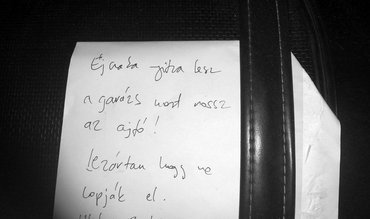 Éjszaka nyitva lesz
a garázs mert rossz
az ajtó!
Lezártam hogy ne
lopják el.